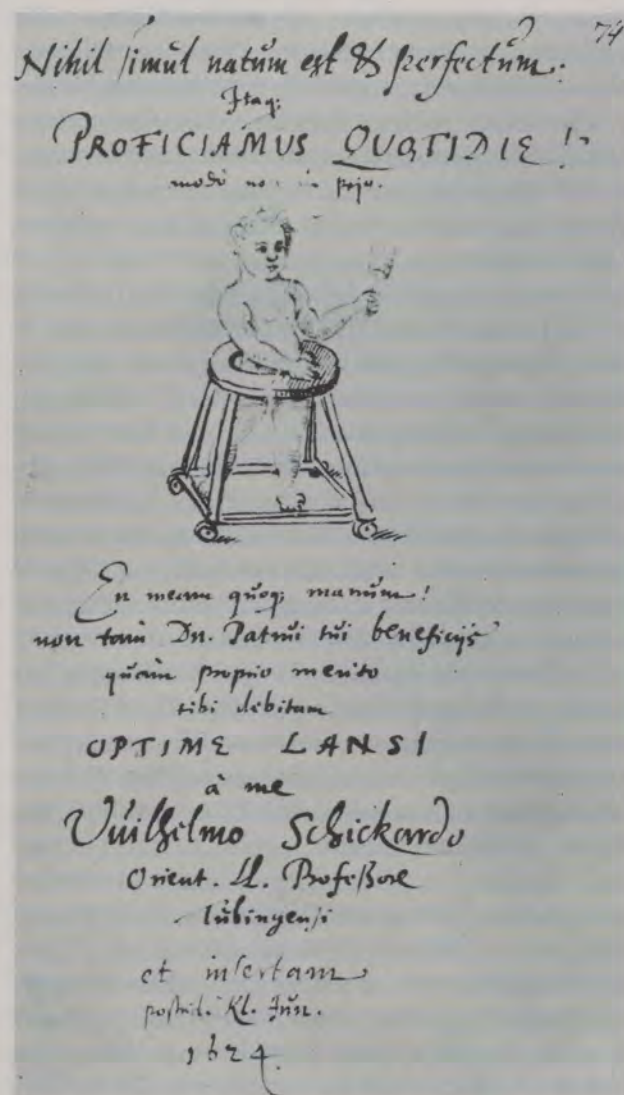 74
Nihil simul natum est & perfectum:
Itaq;
PROFICIAMUS QUOTIDIE!
modò non in pejus.
En meam quoq; manum!
non tam Dn. Patrui tui beneficijs
quàm proprio merito
tibi debitam
OPTIME LANSI
à me
Vuilhelmo Schickardo
Orient. LL. Profeßore
Tubingensi
et insertam
postrid. Kl. Jun.
1624.